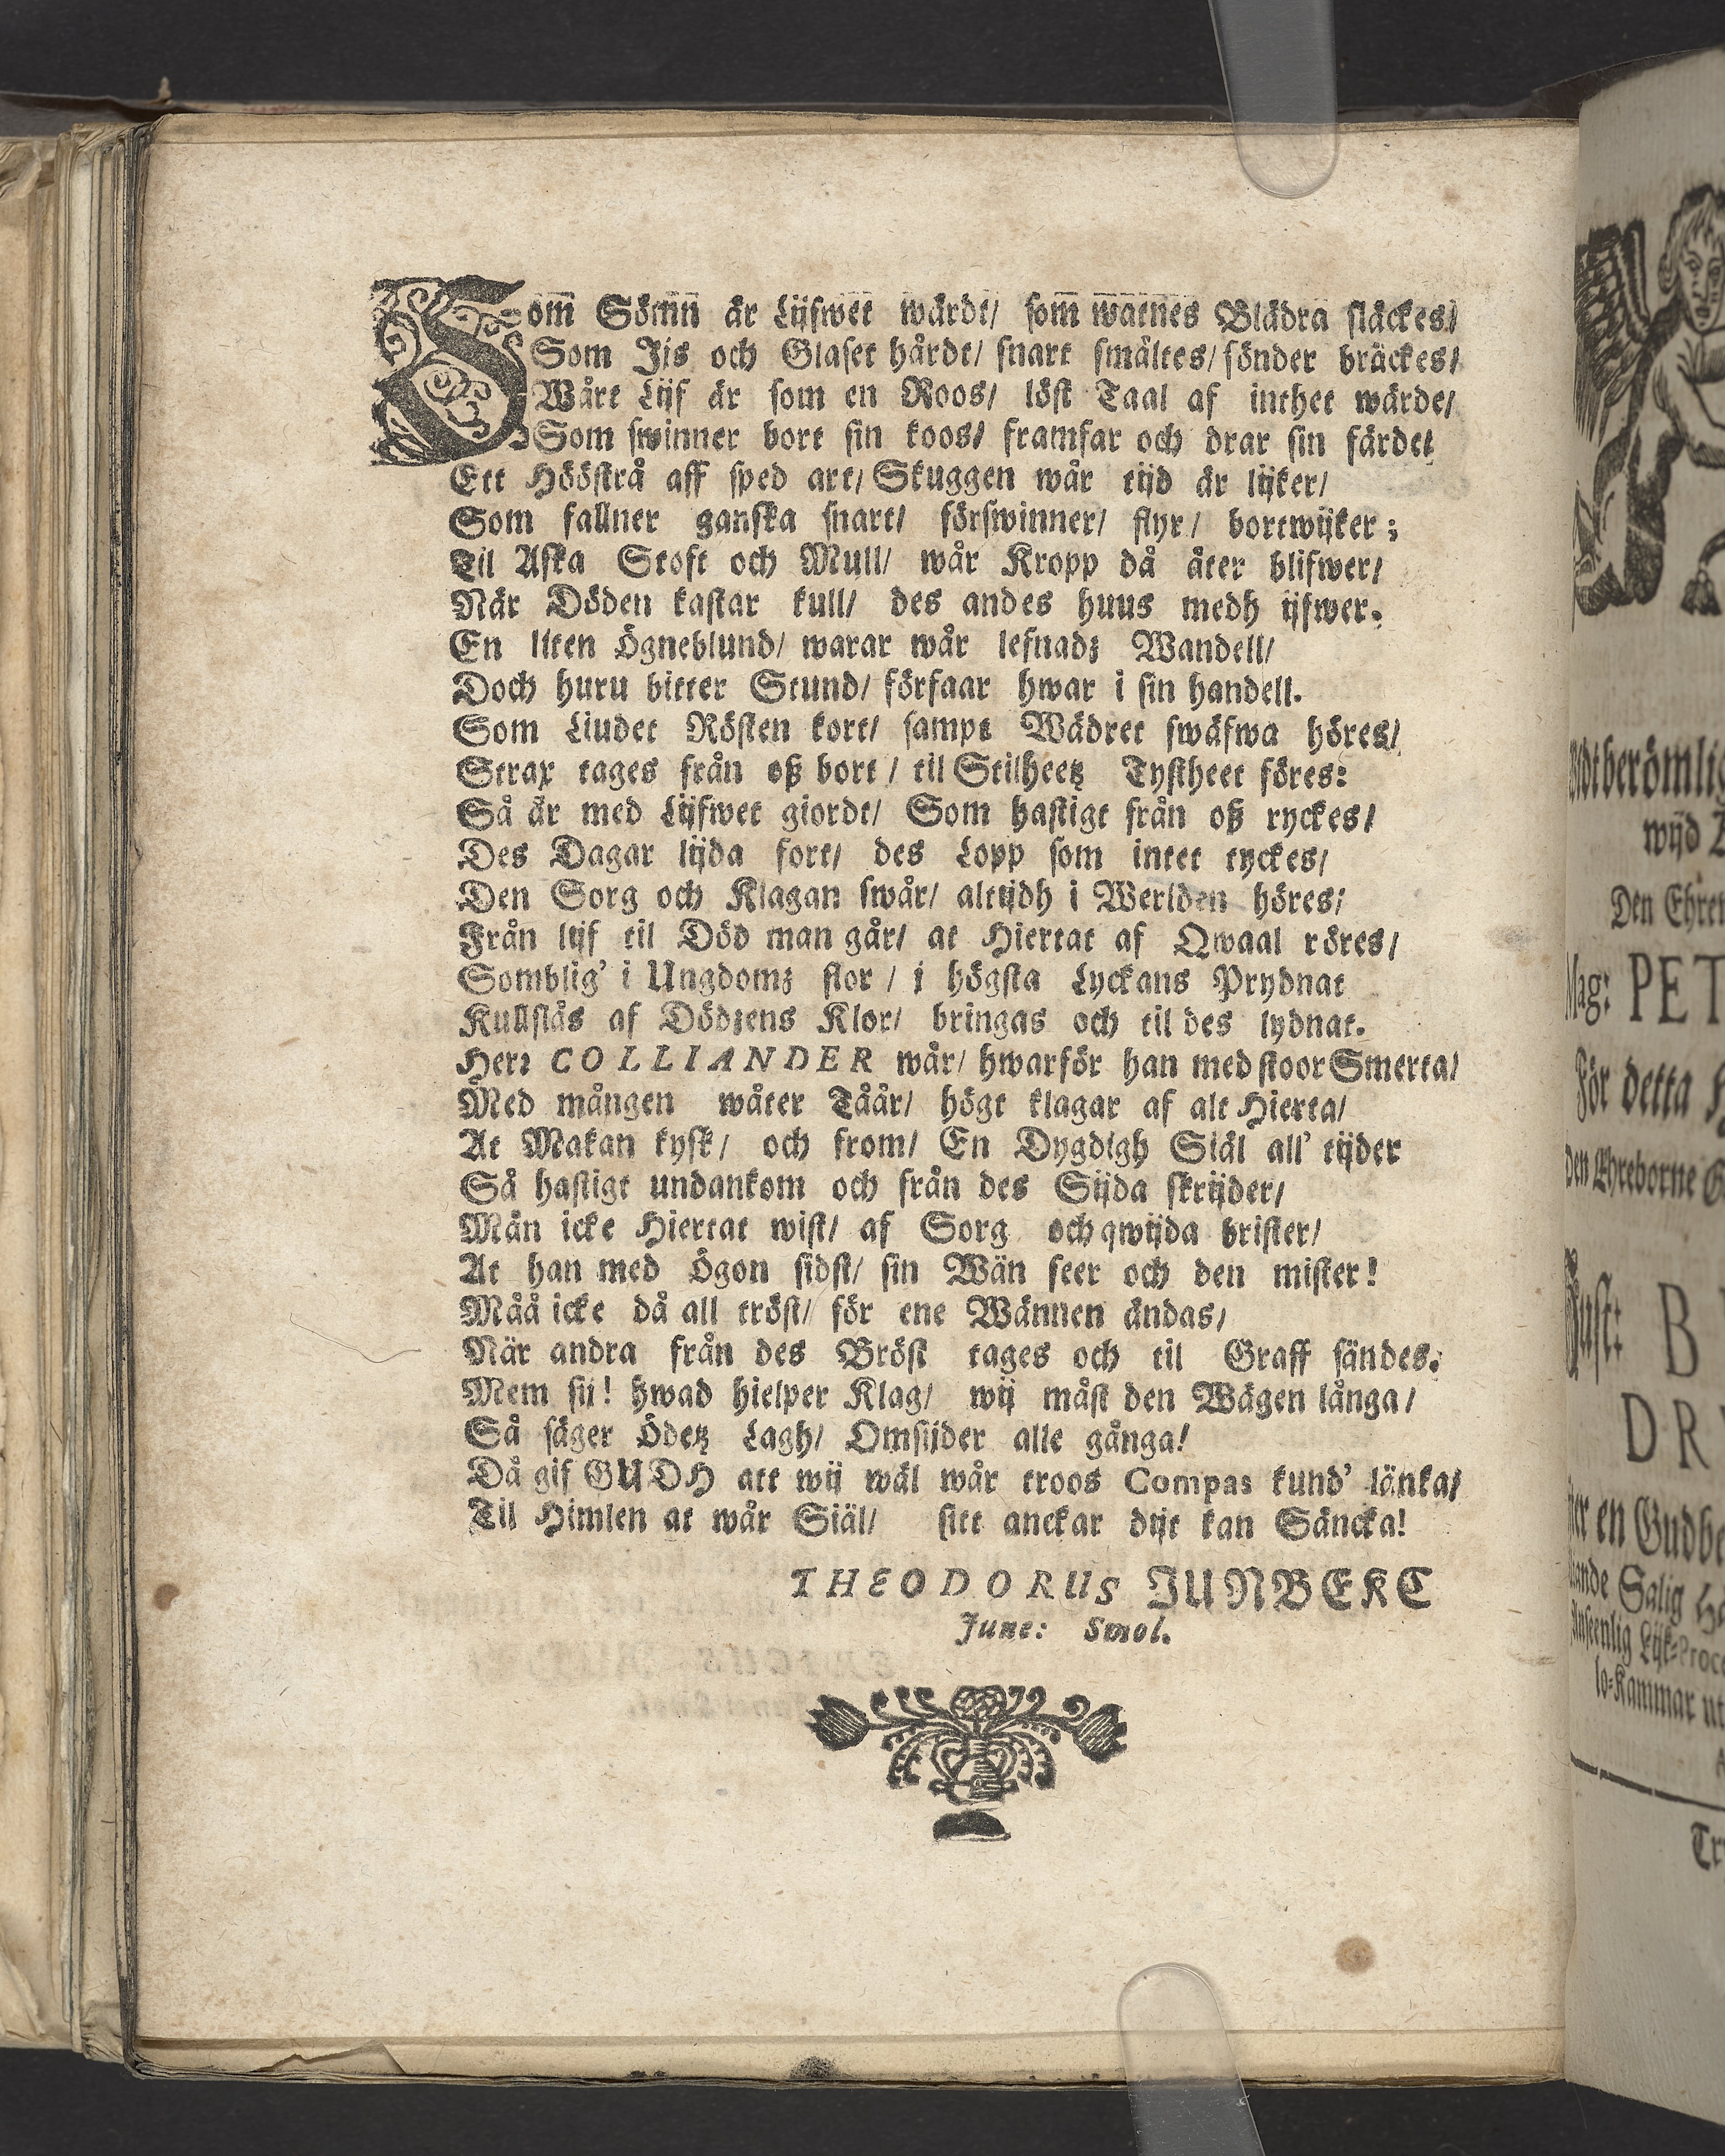 Som̅ Sömn̅ är Lijfwet wärdt/ som̅ watnes Blädra släckes/
Som Jis och Glaset hårdt/ snart smältes/ sönder bräckes/
Wårt Lijf är som en Roos/ löst Taal af inthet wärde/
Som swinner bort sin koos/ framfar och drar sin färdet
Ett Hööstrå aff sped art/ Skuggen wår tijd är lijker/
Som fallner ganska snart/ förswinner/ flyr/ bortwijker;
Til Aska Stoft och Mull/ wår Kropp då åter blifwer/
När Döden kastar kull/ des andes huus medh ijfwer.
En liten Ögneblund/ warar wår lefnadz Wandell/
Doch huru bitter Stund/ förfaar hwar i sin handell.
Som Liudet Rösten kort/ sampt Wädret swäfwa höres/
Strax tages från oß bort/ til Stilheetz Tystheet föres:
Så är med Lijfwet giordt/ Som hastigt från oß ryckes/
Des Dagar lijda fort/ des Lopp som intet tyckes/
Den Sorg och Klagan swår/ alttijdh i Werlden höres;
Från lijf til Död man går/ at Hiertat af Qwaal röres/
Somblig' i Ungdomz flor/ i högsta Lyckans Prydnat
Kullslås af Dödzens Klor/ bringas och til des lydnat.
Herr COLLIANDER wår/ hwarför han med stoor Smerta/
Med mången wåter Tåår/ högt klagar af alt Hierta/
At Makan kysk/ och from/ En Dygdigh Siäl all' tijder
Så hastigt undankom och från des Sijda skrijder/
Mån icke Hiertat wist/ af Sorg och qwijda brister/
At han med Ögon sidst/ sin Wän seer och den mister!
Måå icke då all tröst/ för ene Wännen ändas/
När andra från des Bröst tages och til Graff sändes.
Mem sij! hwad hielper Klag/ wij måst den Wägen långa/
Så säger Ödetz Lagh/ Omsijder alle gånga!
Då gif GUDH att wij wäl wår troos Compas kund' länka/
Til Himlen at wår Siäl/ sitt anckar dijt kan Säncka!
THEODORUS JUNBEKC
June: Smol.
berömlig
wijd
Den Ehre
Mag: PET
För detta
Den Ehreborne
DR
en Gudh
Salig
Anseenlig Lijk-Proce
lo-Kammar